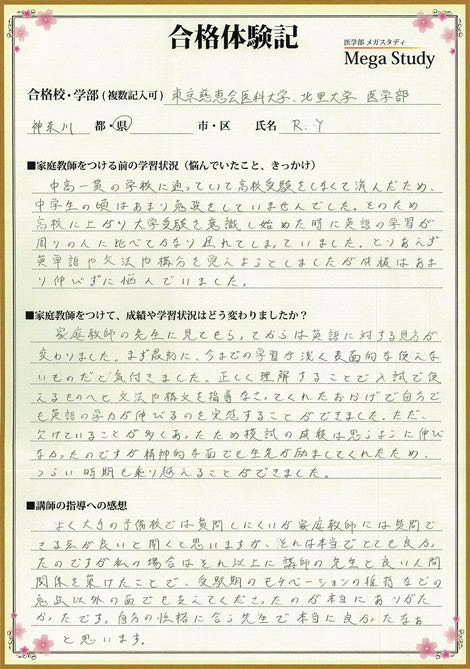 合格体験記
医学部 メガスタディ
Mega Study
合格校・学部(複数記入可) 東京慈恵会医科大学、北里大学 医学部
神奈川 都・県 市・区 氏名 R.Y
■家庭教師をつける前の学習状況(悩んでいたこと、きっかけ)
中高一貫の学校に通っていて高校受験をしなくて済んだため、
中学生の頃はあまり勉強をしていませんでした。そのため
高校に上がり大学受験を意識し始めた時に英語の学習が
周りの人に比べてかなり遅れてしまっていました。とりあえず
英単語や文法や構文を覚えようとしましたが成績はあま
り伸びずに悩んでいました。
■家庭教師をつけて、成績や学習状況はどう変わりましたか？
家庭教師の先生に見てもらってからは英語に対する見方が
変わりました。まず最初に、今までの学習が浅く表面的な使えな
いものだと気付きました。正しく理解することで入試で使
えるものへと文法や構文を指導なさってくれたおかげで自分で
も英語の学力が伸びるのを実感することができました。ただ、
欠けていることが多くあったため模試の成績は思うように伸び
なかったのですが精神的な面でも先生が励ましてくれたため、
つらい時期も乗り越えることができました。
■講師の指導への感想
よく大手の予備校では質問しにくいが家庭教師には質問で
きる点が良いと聞くと思いますが、それは本当でとても良かっ
たのですが私の場合はそれ以上に講師の先生と良い人間
関係を築けたことで、受験期のモチベーションの維持などの
勉強以外の面でも支えてくださったのが本当にありがた
かったです。自分の性格に合う先生で本当に良かったなぁ
と思います。